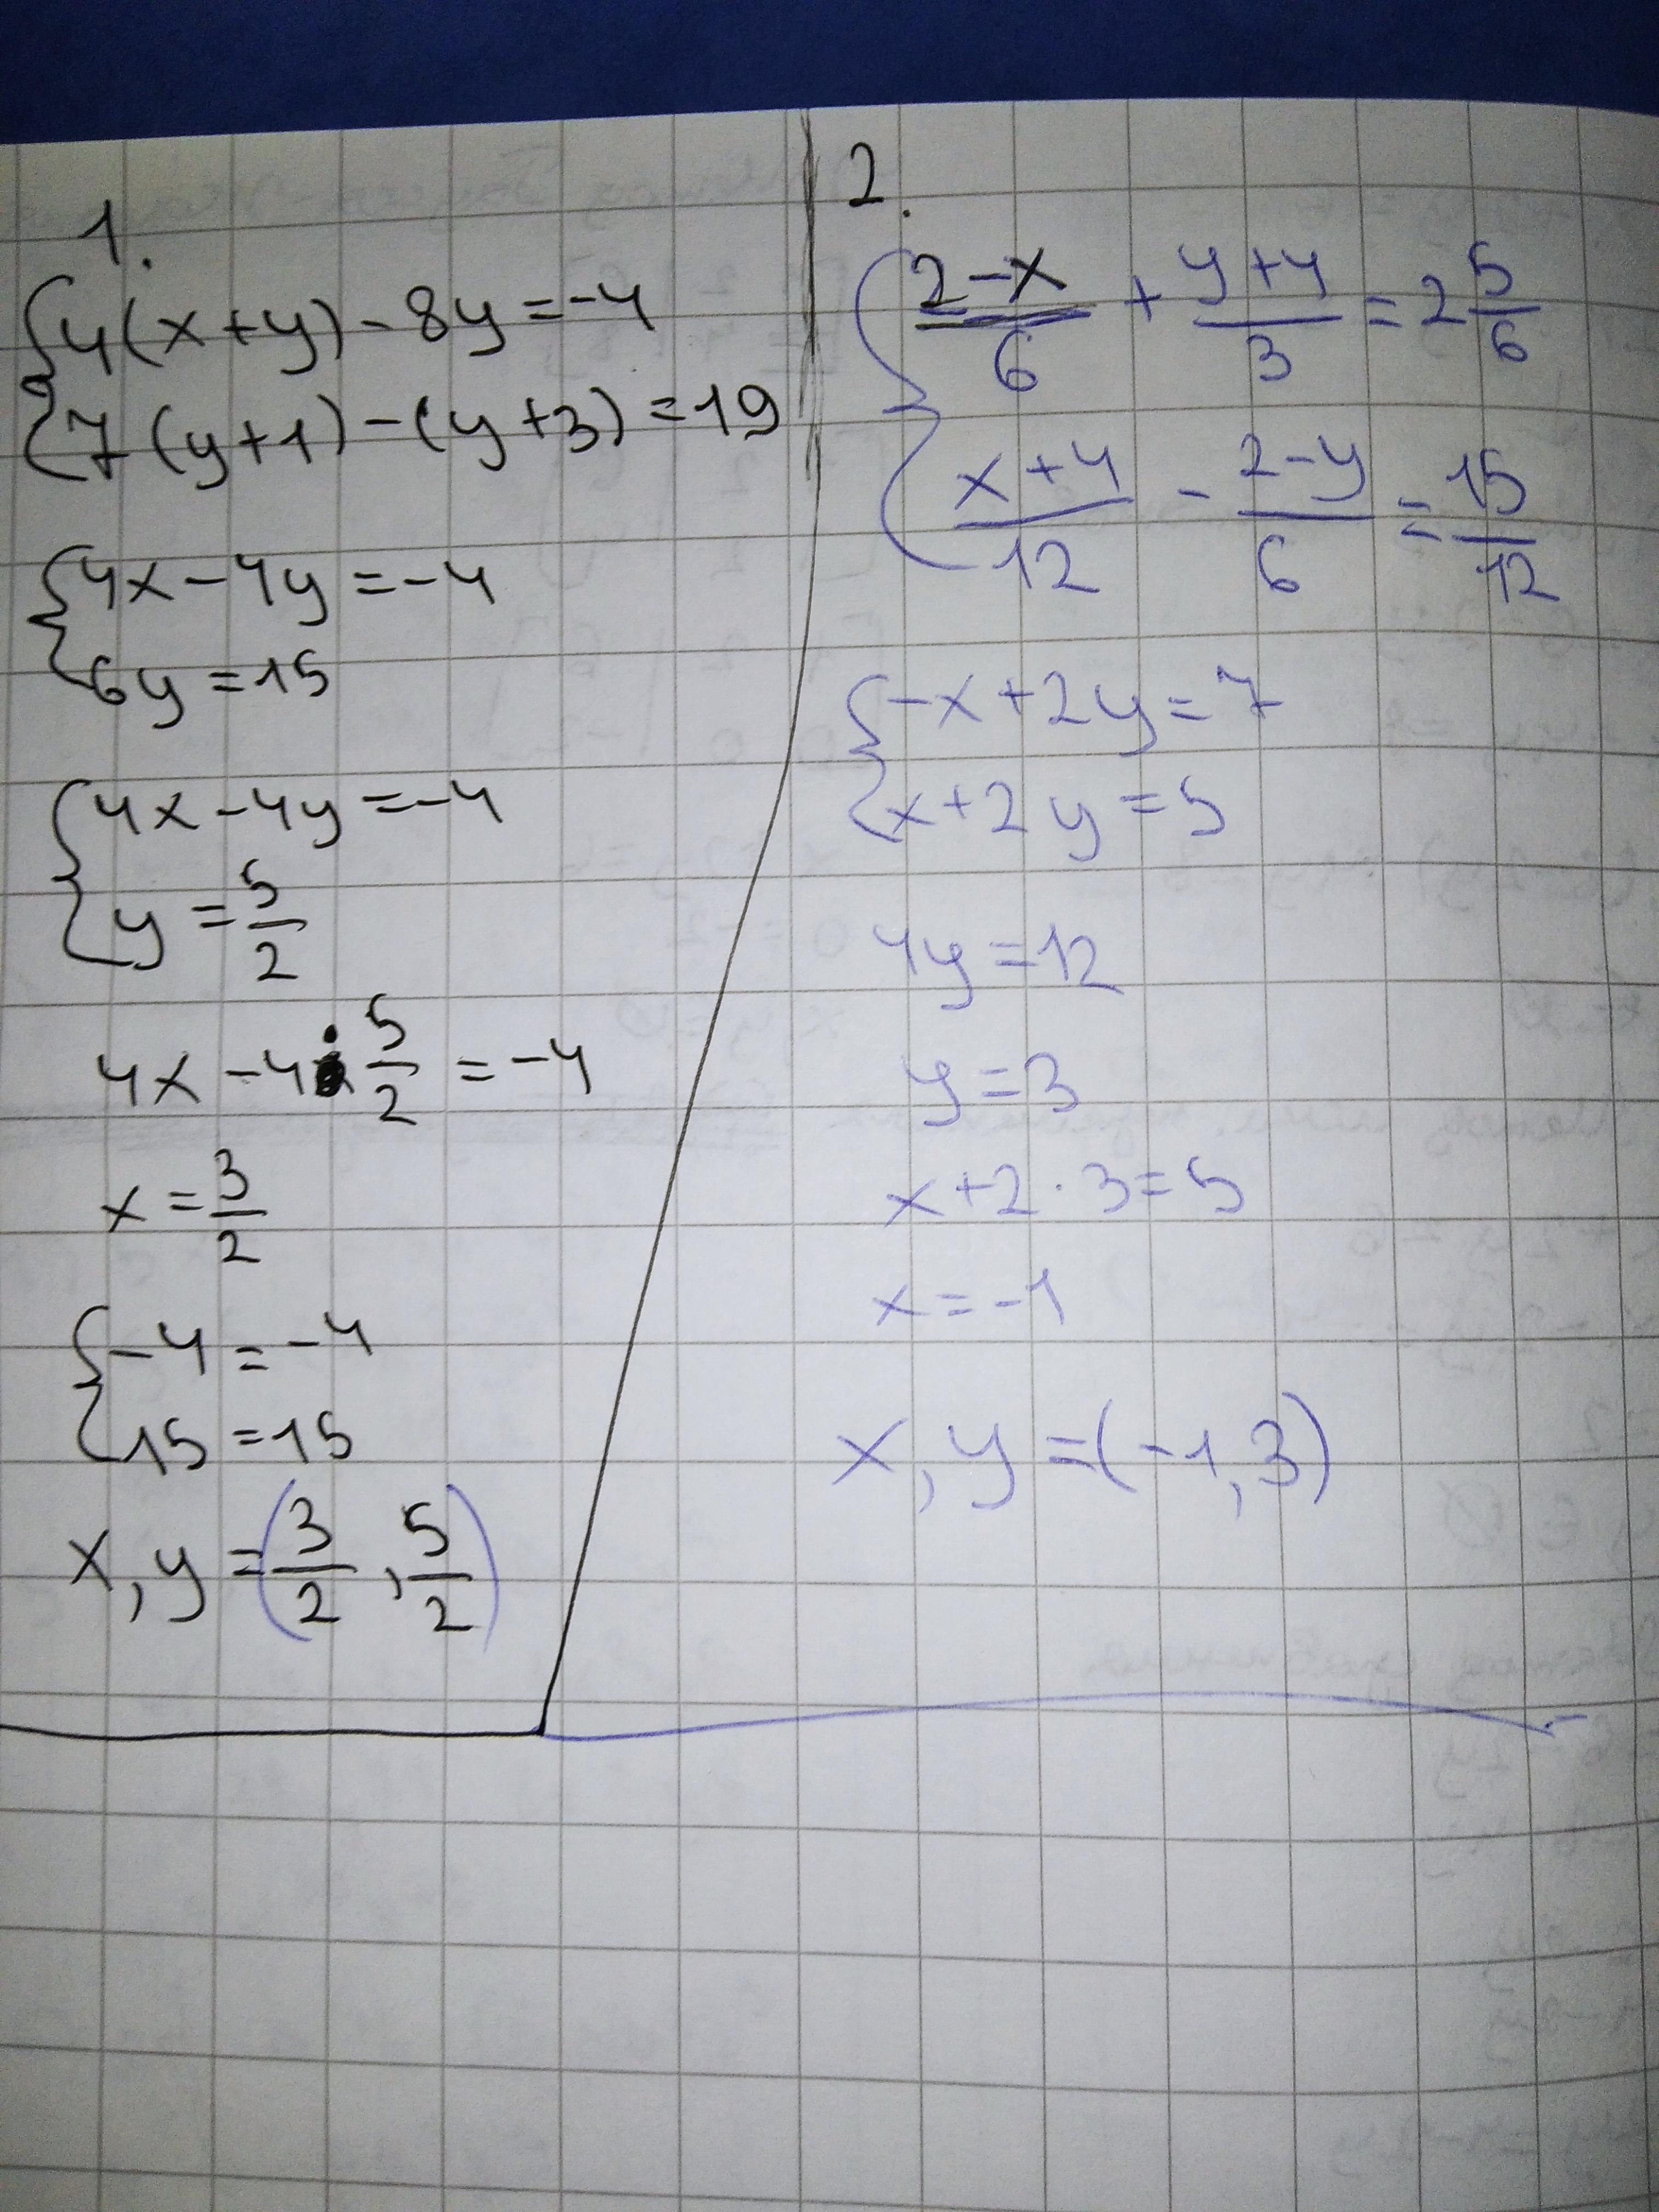 1.
4(x+y)-8y=-4
7(y+1)-(y+3)=19
4x-4y=-4
6y=15
4x-4y=-4
y=5/2
4x-4·5/2=-4
x=3/2
-4=-4
15=15
x,y=(3/2,5/2)
2.
2-x/6+y+4/3=2 5/6
x+4/12-2-y/6=15/12
-x+2y=7
x+2y=5
4y=12
y=3
x+2·3=5
x=-1
x,y=(-1,3)